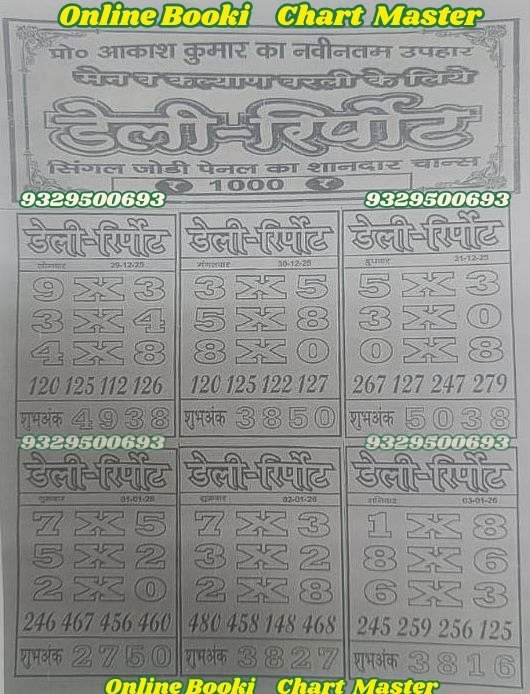 Online Booki Chart Master
प्रो० आकाश कुमार का नवीनतम उपहार
मेन व कल्याण वरली के लिये
डेली-रिर्पोट
सिंगल जोडी पेनल का शानदार चान्स
1000
9329500693 9329500693
डेली-रिर्पोट डेली-रिर्पोट डेली-रिर्पोट
सोमवार 29-12-25 मंगलवार 30-12-25 बुधवार 31-12-25
9 X 3 3 X 5 5 X 3
3 X 4 5 X 8 3 X 0
4 X 8 8 X 0 0 X 8
120 125 112 126 120 125 122 127 267 127 247 279
शुभअंक 4938 शुभअंक 3850 शुभअंक 5038
9329500693 9329500693
डेली-रिर्पोट डेली-रिर्पोट डेली-रिर्पोट
01-01-26 शुक्रवार 02-01-26 शनिवार 03-01-26
7 X 5 7 X 3 1 X 8
5 X 2 3 X 2 8 X 6
2 X 0 2 X 8 6 X 3
246 467 456 460 480 458 148 468 245 259 256 125
शुभअंक 2750 शुभअंक 3827 शुभअंक 3816
Online Booki Chart Master